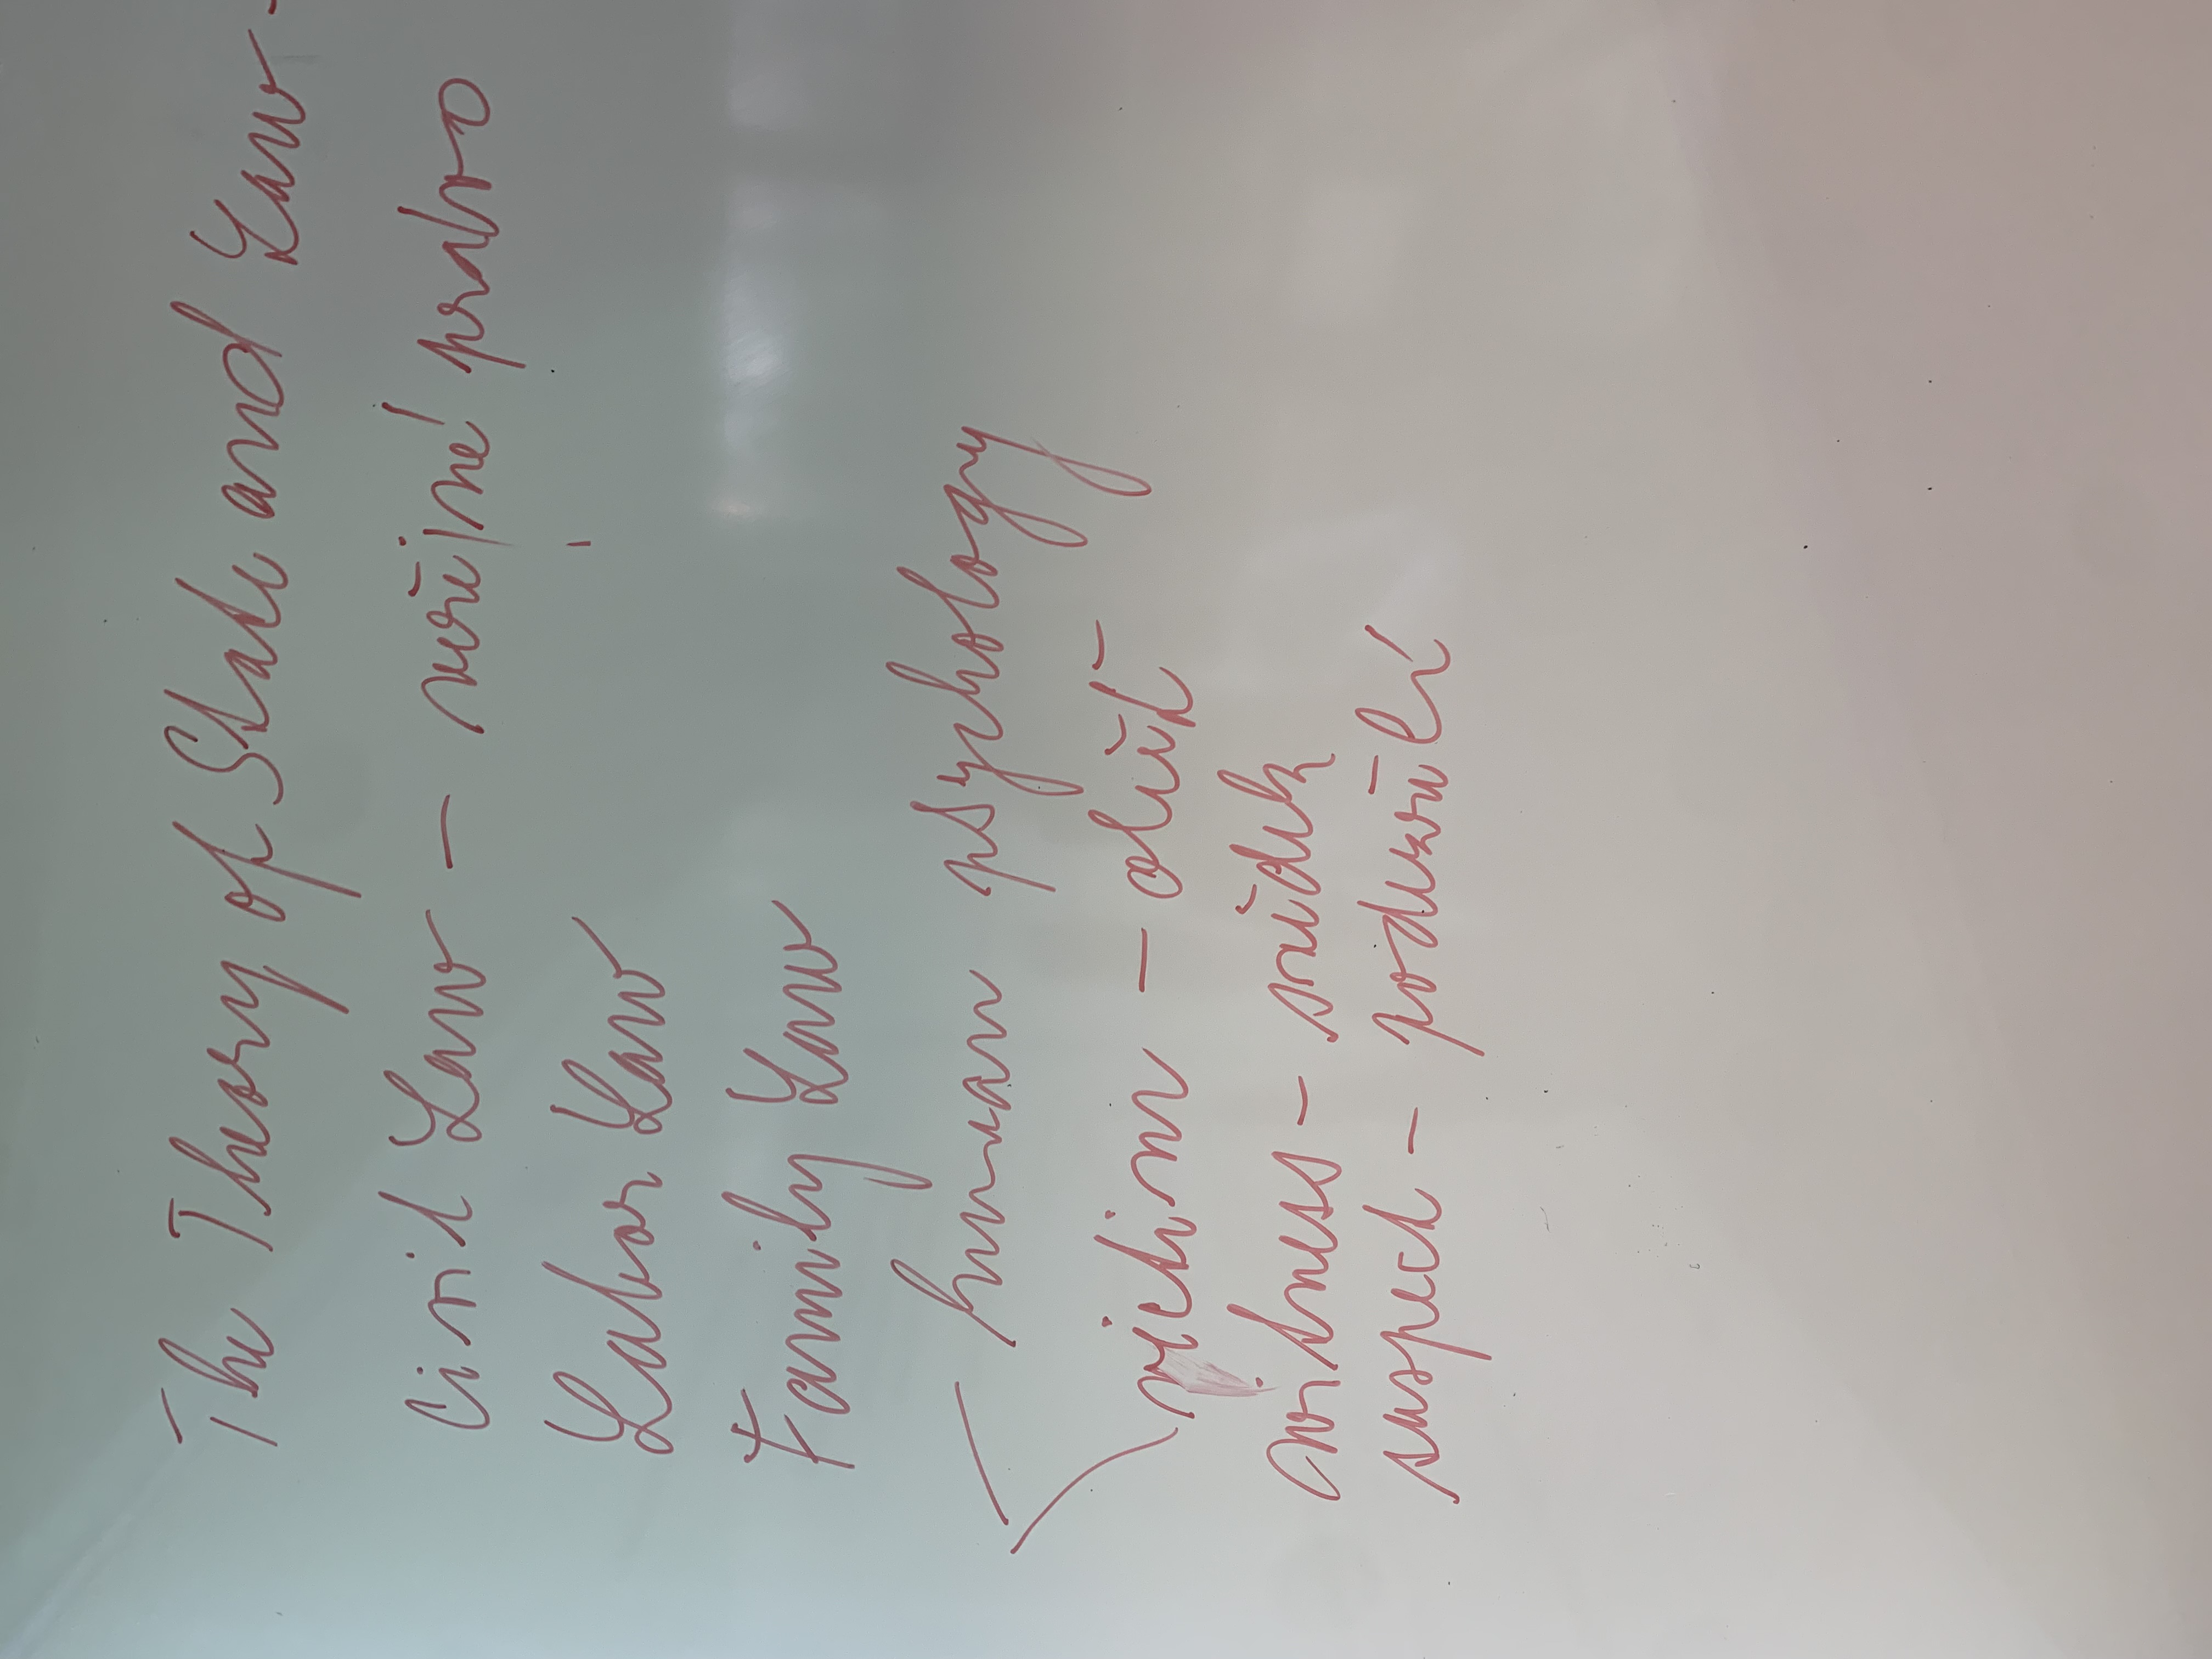 The Theory of State and Law -
Civil Law - veřejné právo
Labor Law
Family Law
human psychology
victim - oběť -
witness - svědek
suspect - podezřelí